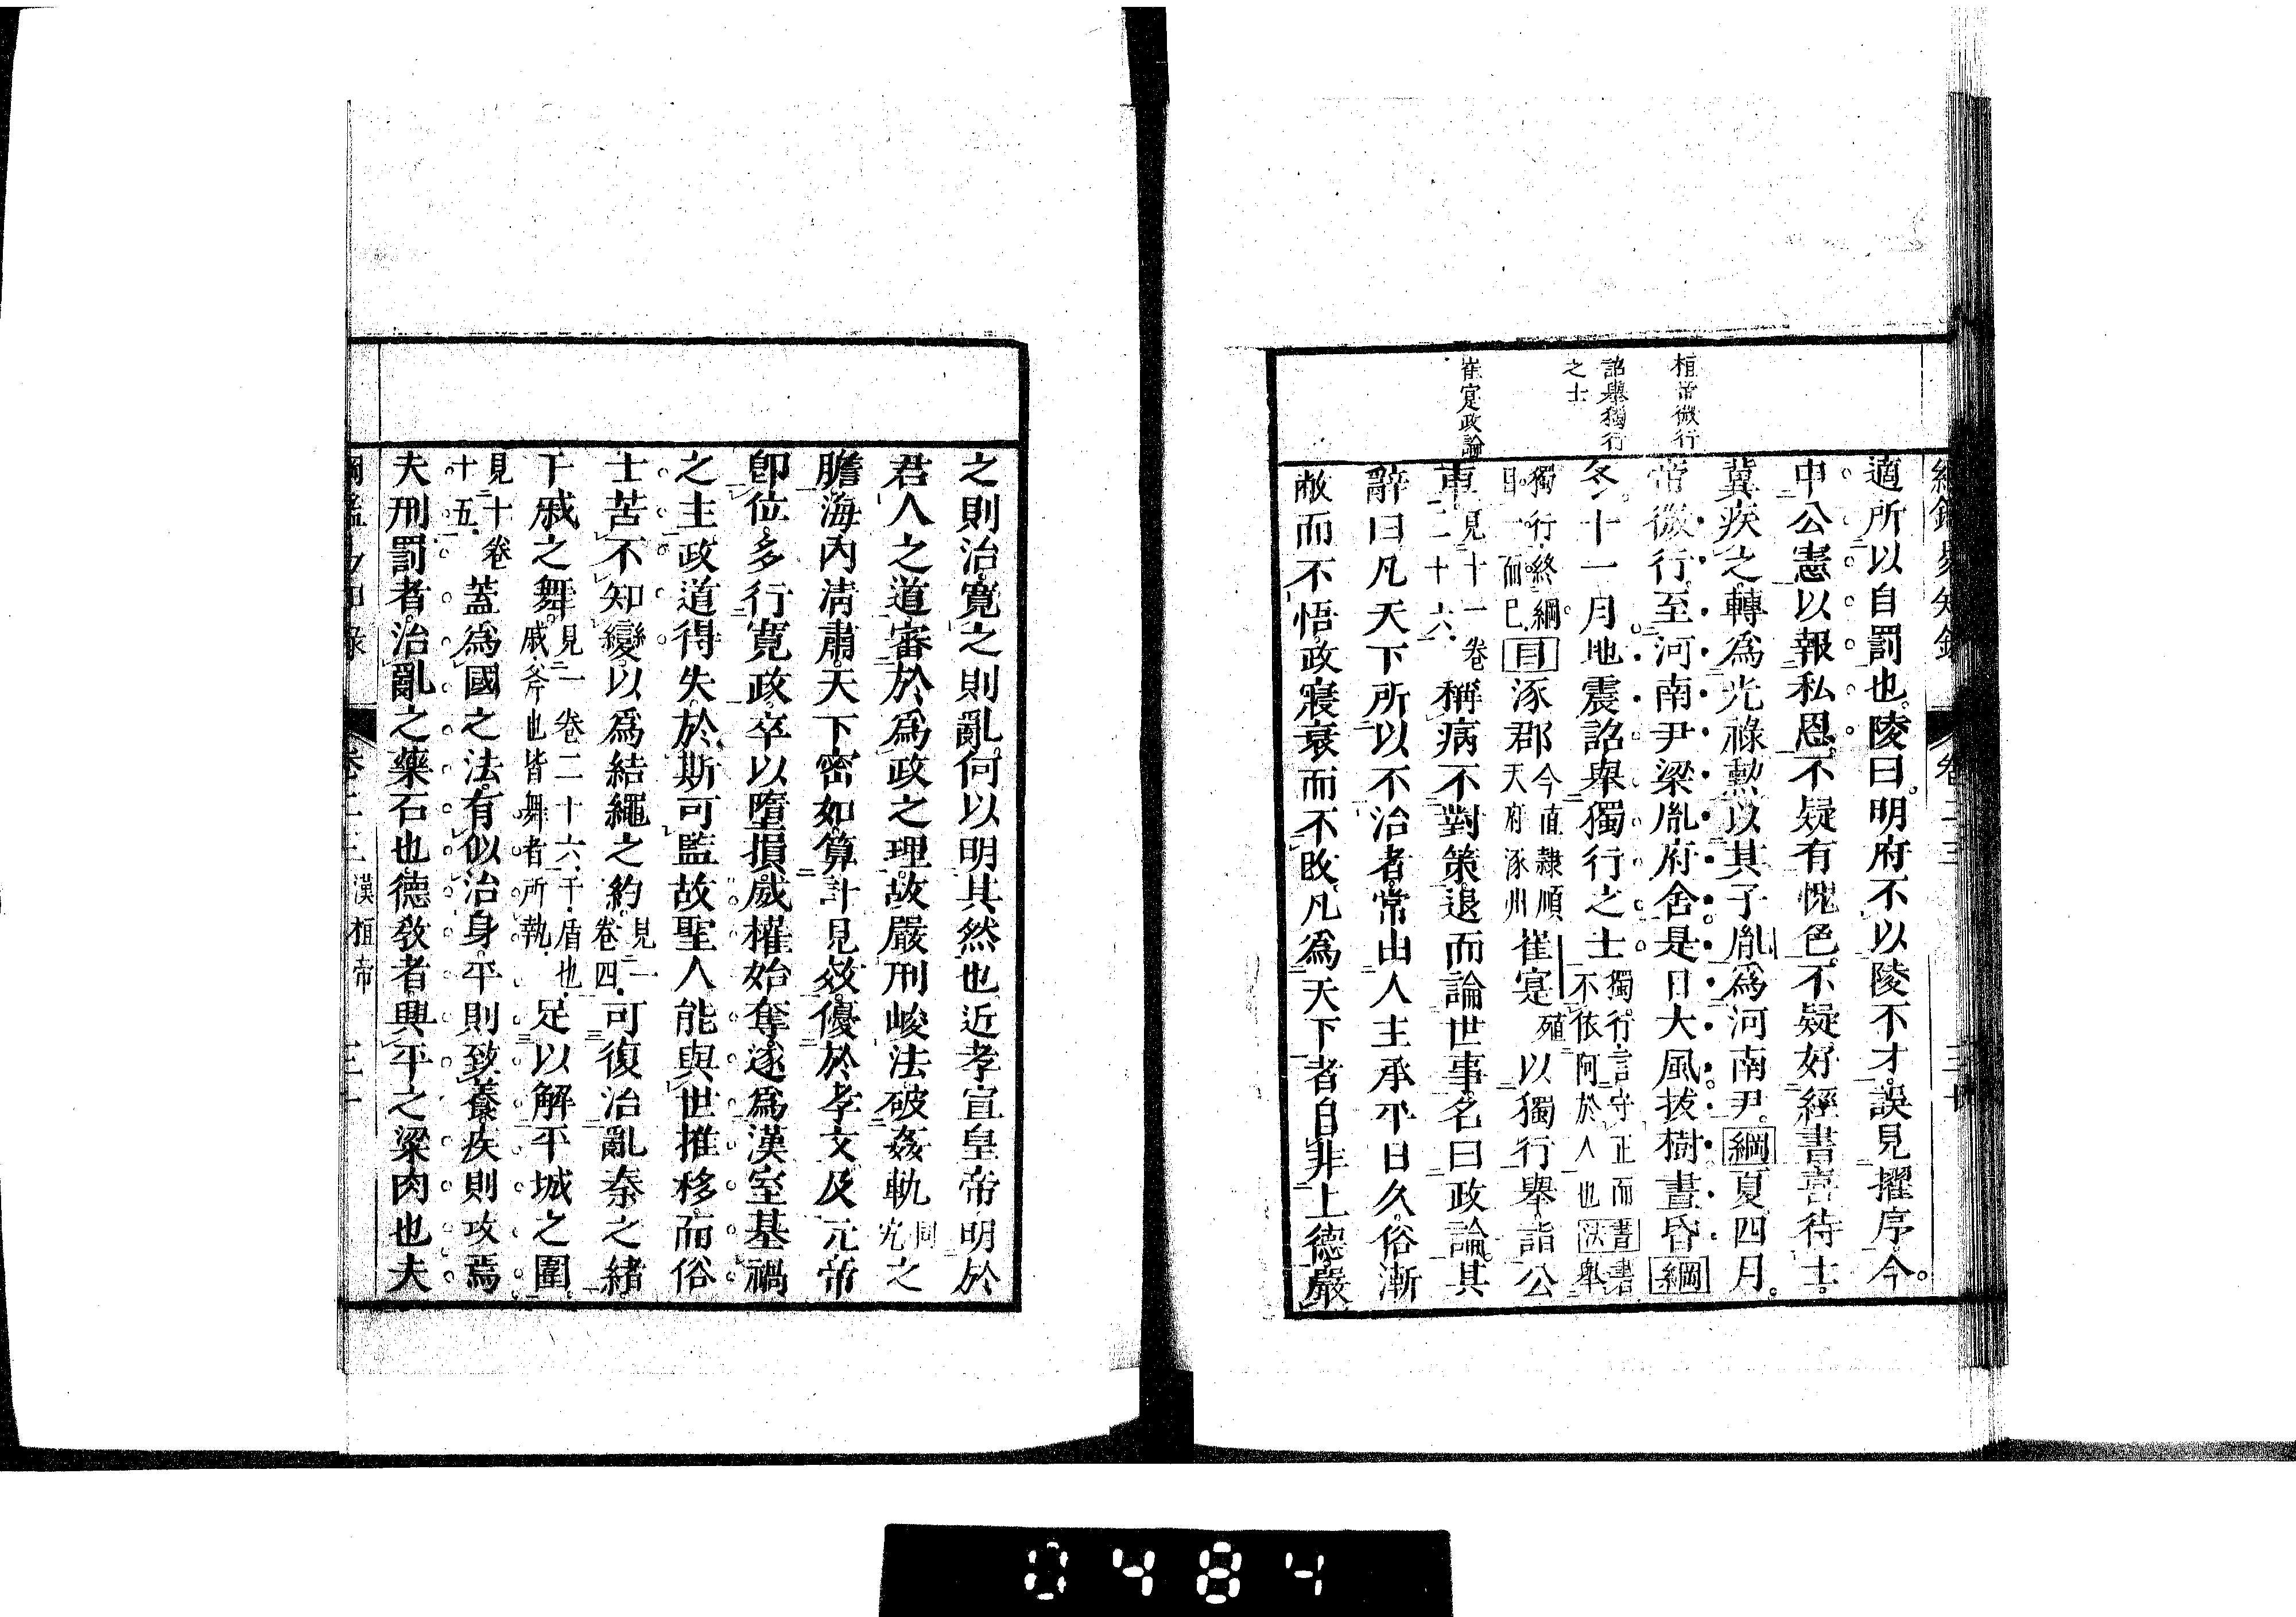 桓帝微行
詔舉獨行
之士
崔寔政論
適所以自罰也陵曰明府不以陵不才誤見擢序今
申公憲以報私恩不疑有愧色不疑好經書喜待士
冀疾之轉爲光祿勲以其子胤爲河南尹綱夏四月
帝微行至河南尹梁胤府舍是日大風拔樹晝昏綱
冬十一月地震詔舉獨行之士獨行言守正而書書
不依阿於人也法舉
獨行終綱
目一而已目涿郡今直隸順
天府涿州崔寔殖以獨行舉詣公
車見十一卷
二十六稱病不對策退而論世事名曰政論其
辭曰凡天下所以不治者常由人主承平日久俗漸
敝而不悟政寢衰而不改凡爲天下者自非上德嚴
之則治寬之則亂何以明其然也近孝宣皇帝明於
君人之道審於爲政之理故嚴刑峻法破姦軌同
宄之
膽海內淸肅天下密如算計見效優於孝文及元帝
卽位多行寬政卒以墮損威權始奪遂爲漢室基禍
之主政道得失於斯可監故聖人能與世推移而俗
士苦不知變以爲結繩之約見一
卷四可復治亂秦之緖
干戚之舞見二卷二十六干盾也
戚斧也皆舞者所執足以解平城之圍
見十卷
十五蓋爲國之法有似治身平則致養疾則攻焉
夫刑罰者治亂之藥石也德敎者興平之梁肉也夫
卷二三 漢桓帝
0484